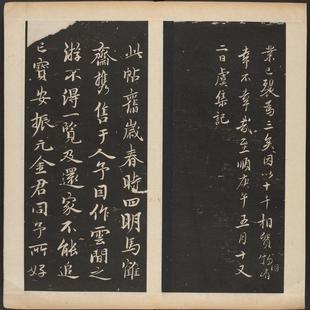 業已裂為三矣因以十千相貿物固有
幸不幸哉至順庚午五月十又
二日虞集記
此帖舊歲春時四明馬雒
齋携售于人予因作雲間之
游不得一覽及還家不能追
已寶安振元金君同予所好